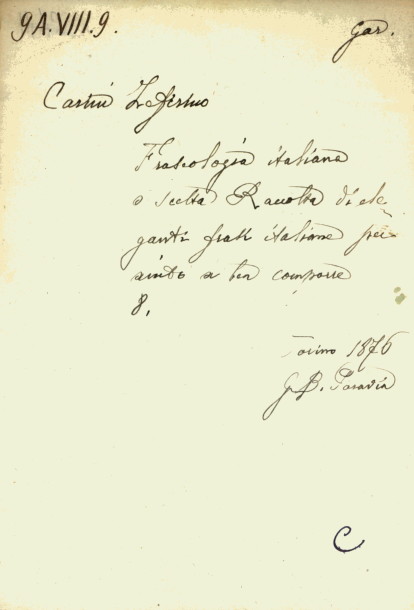 9A.VIII.9.
Gar.
Carini Zefirino
Fraseologia italiana
o scelta Raccolta di ele-
ganti frasi italiane per
aiuto a ben comporre
8.
Torino 1876
G. B. Paravia
C